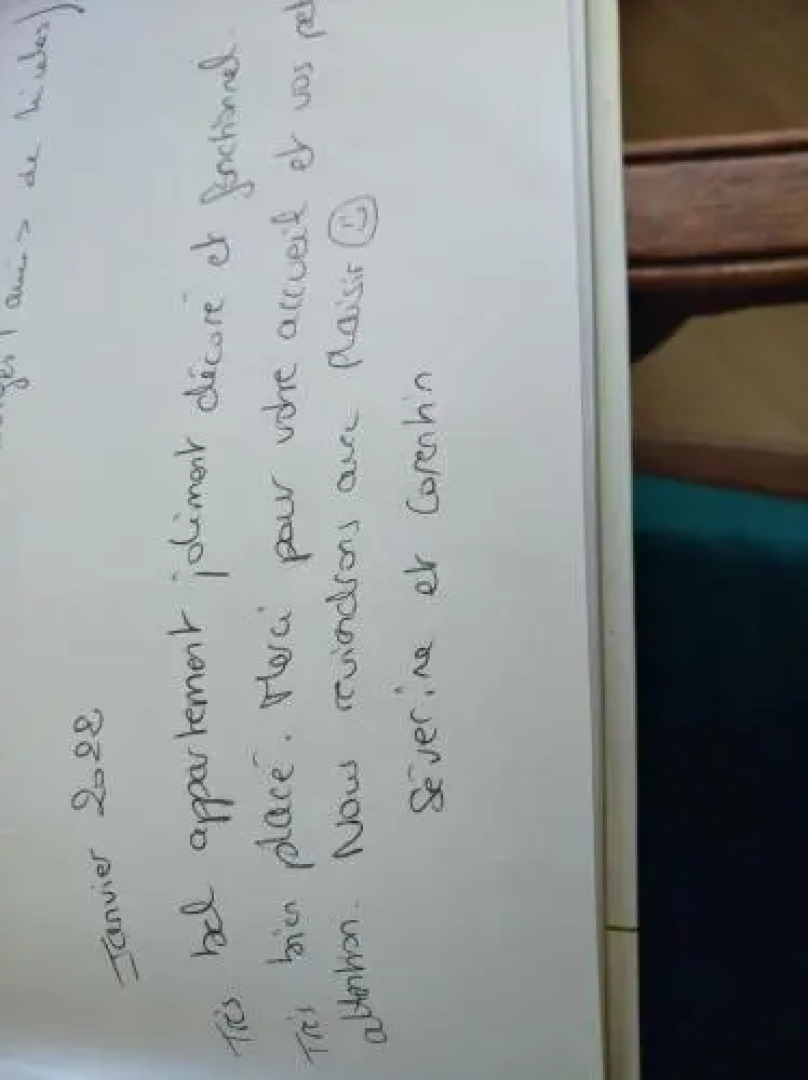 de
Janvier 2022
Très bel appartement joliment décoré et fonctionnel.
Très bien placé. Merci pour votre accueil et vos
attention. Nous reviendrons avec plaisir
Séverine et Corentin